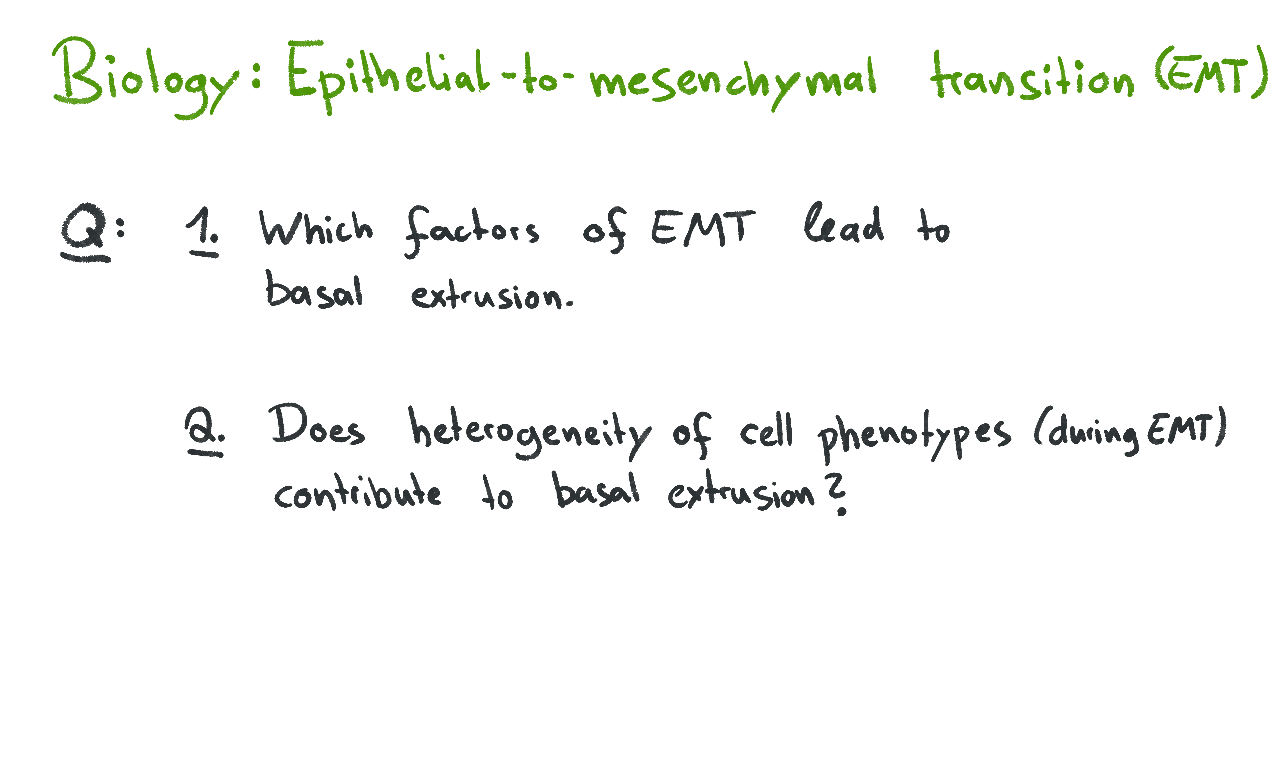 Biology: Epithelial-to-mesenchymal transition (EMT)
Q: 1. Which factors of EMT lead to
basal extrusion.
2. Does heterogeneity of cell phenotypes (during EMT)
contribute to basal extrusion?